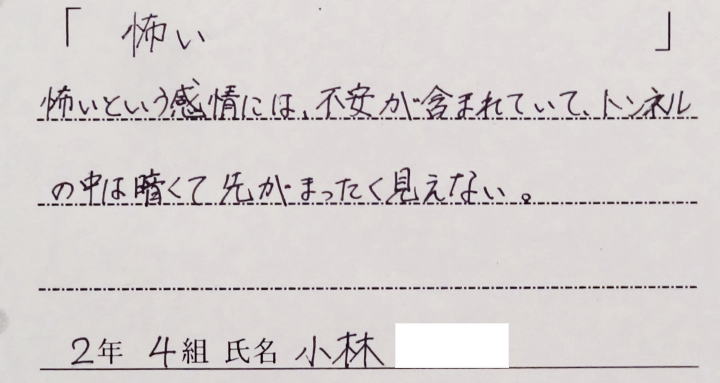 「 怖い 」
怖いという感情には、不安が含まれていて、トンネル
の中は暗くて先がまったく見えない。
2年 4組 氏名 小林